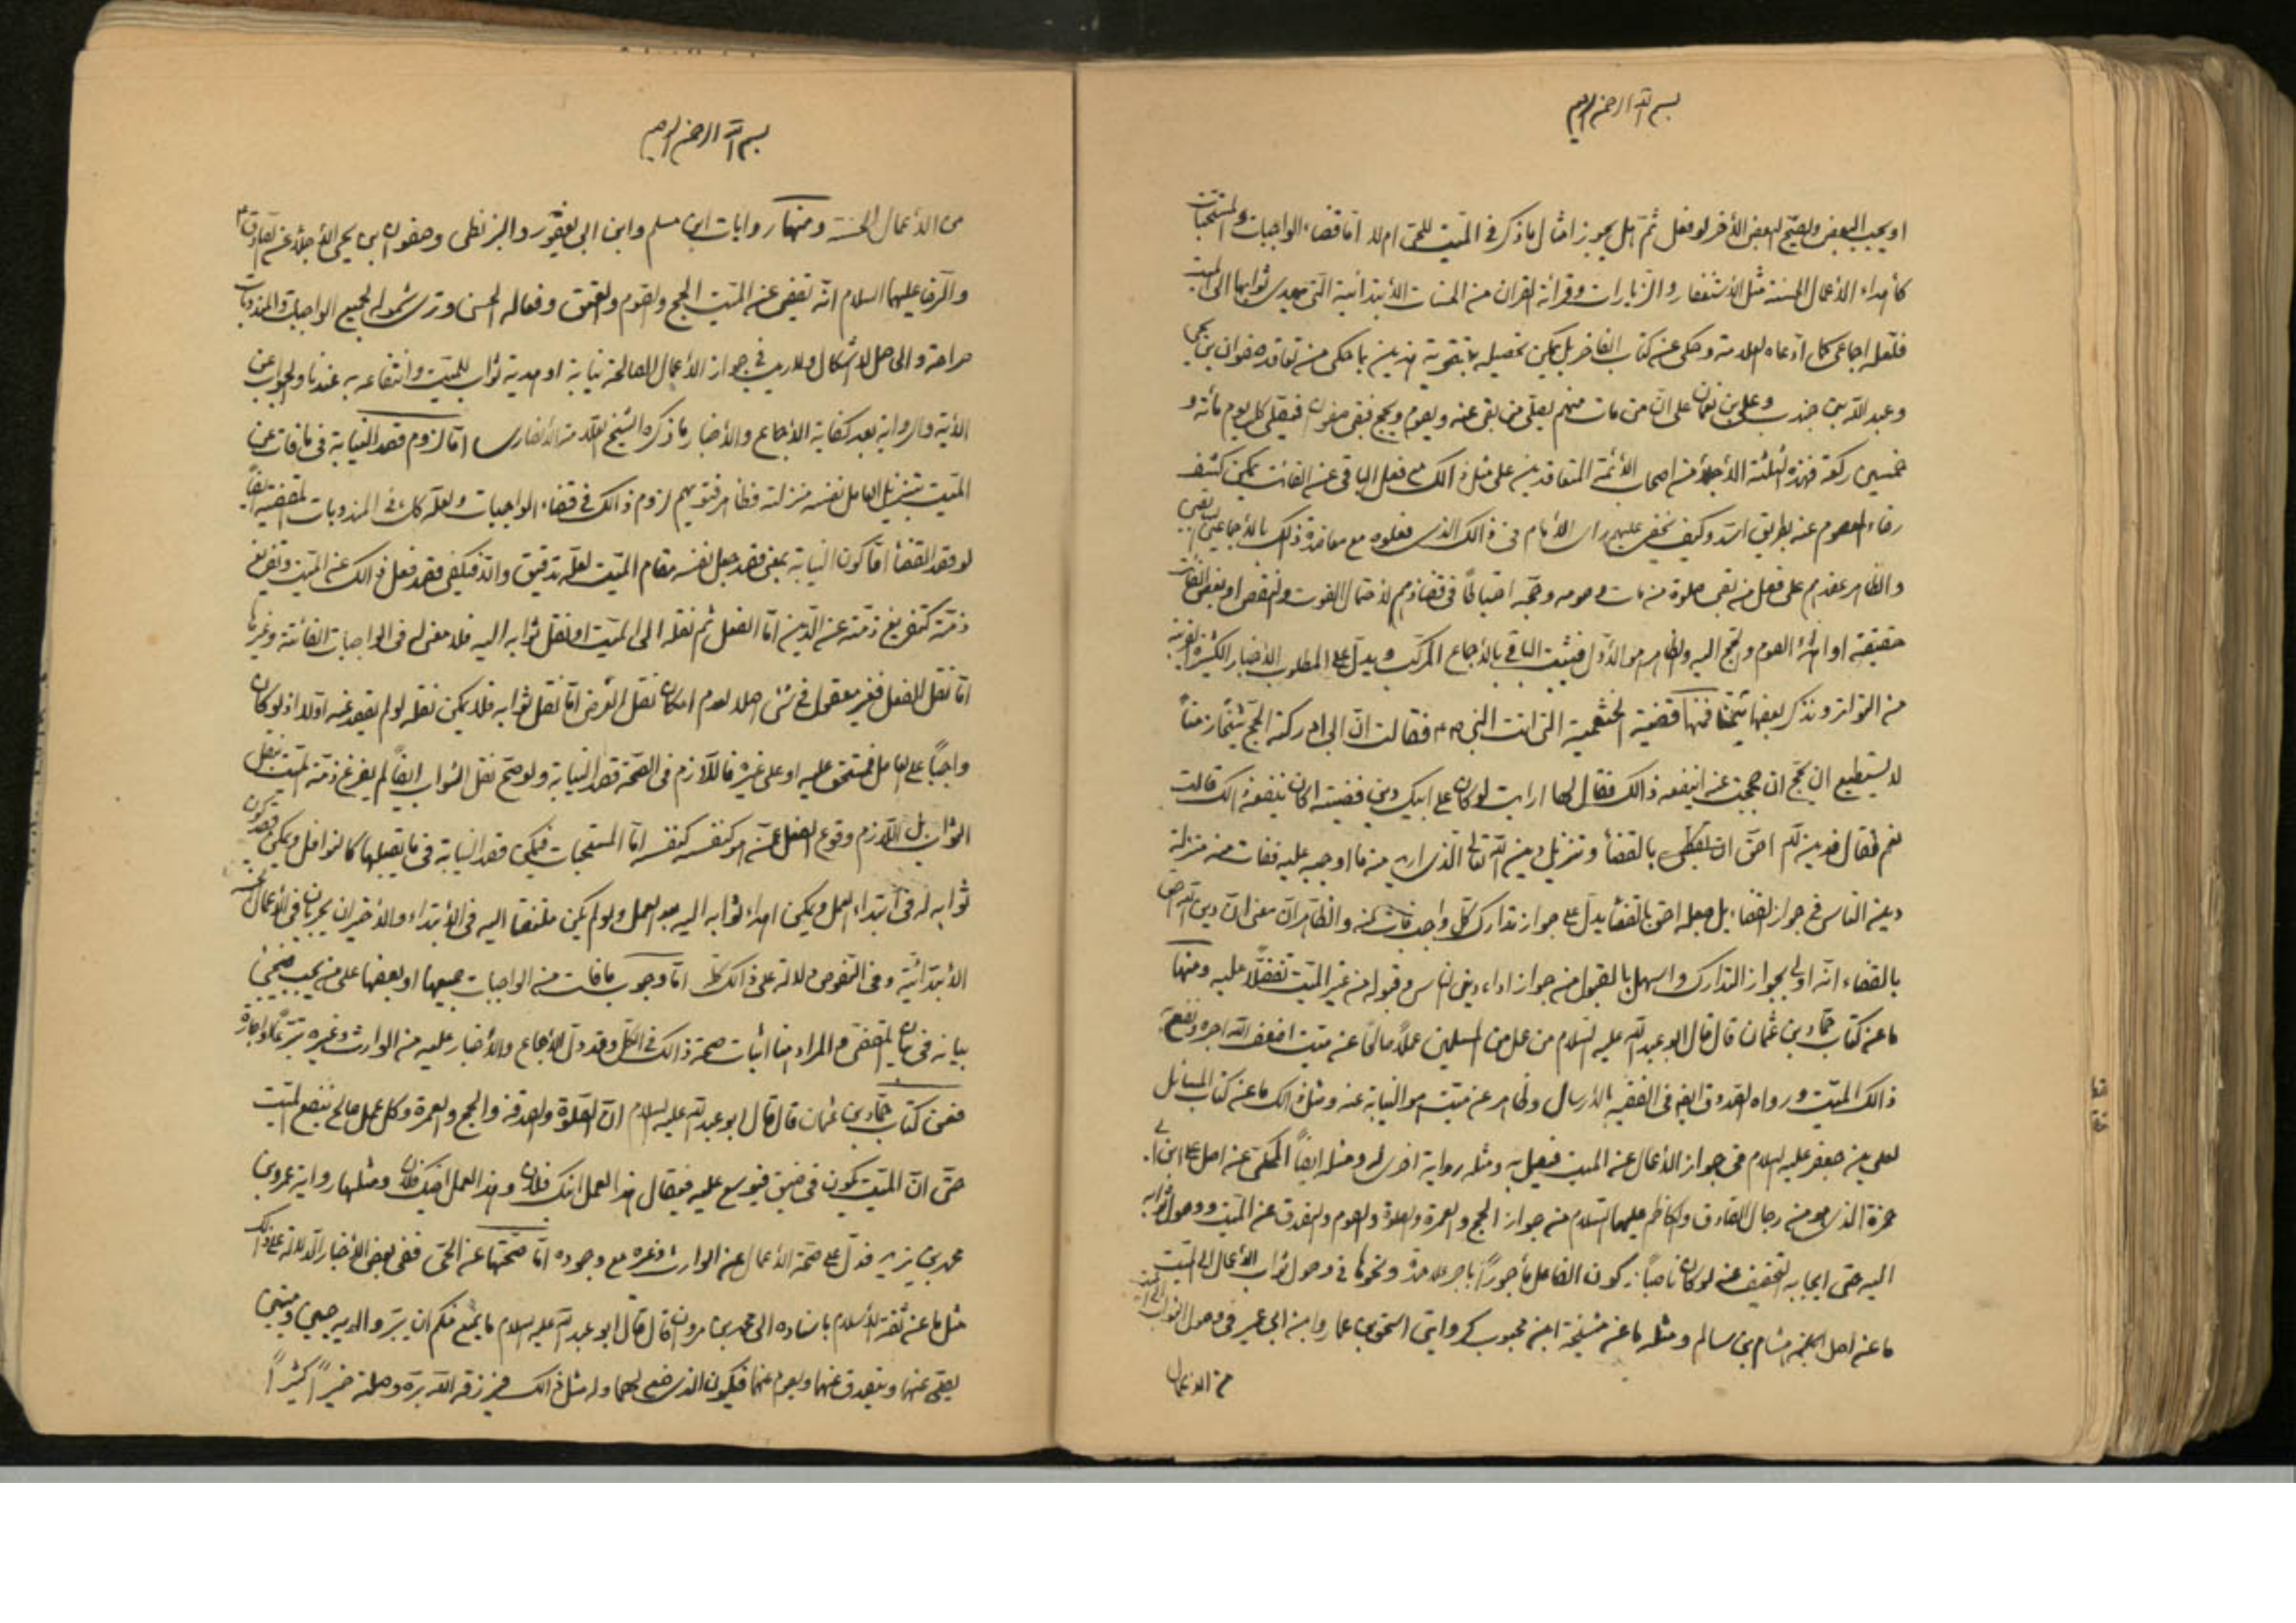 بسم الله الرحمن الرحيم
او يجب البعض ويصح البعض الأخر لو فعل ثم هل يجوز امثال ما ذكر في الميت للحى ام لا اما قضاء الواجبات والمستحبات
كأهداء الأعمال الحسنة مثل الأستغفار والزيارات وقرائة القران من الحسنات الأبتدائية التى يهدى ثوابها الى الميت
فلعله اجماعى كما ادعاه العلامة وحكى عن كتاب الفاخر بل يمكن تحصيله بتقوية هذين بما حكى من تعاقد صفوان بن يحيى
وعبد الله بن جندب وعلى بن نعمان على ان من مات منهم يصلى من بقى عنه ويصوم ويحج فبقى صفوان فيصلى كل يوم مائة و
خمسين ركعة فهذه الثلثة الأجلاء من اصحاب الأئمة المتعاقدين على مثل ذالك فعل الباقى عن الفائت يمكن كشف
رضاء المعصوم عنه بطريق اسد وكيف يخفى عليهم راى الأمام فى ذالك الذى فعلوه مع معاضدة ذلك بالأجماعين
والظاهر عقدهم على فعل من بقى صلوة من مات وصومه وحجه احتياطا فى قضائهم لأحتمال الفوت والنقص او بعض الفائت
حقيقة او اهداء الصوم والحج اليه والظاهر هو الأول فيثبت الباقى بالأجماع المركب ويدل على المطلوب الأخبار الكثيرة القريبة
من التواتر ونذكر بعضها تيمنا فمنها قضية الخثعمية التى اتت النبى ص فقالت ان ابى ادركته الحج شيخا زمنا
لا يستطيع ان يحج ان حججت عنه اينفعه ذالك فقال لها ارايت لو كان على ابيك دين فقضيته اكان ينفعه ذالك قالت
نعم فقال فدين الله احق ان يقضى بالقضاء وتنزيل دين الله تعالى الذى من ما اوجبه عليه ففات منه منزلة
دين الناس فى جواز القضاء بل جعله احق بالقضاء يدل على جواز تدارك كل واجب فات منه والظاهر ان معنى ان دين الله احق
بالقضاء انه اولى بجواز التدارك واسهل بالقبول من جواز اداء دين الناس وقبوله من غير الميت تفضلا عليه ومنها
ما عن كتاب حماد بن عثمان قال قال ابو عبد الله عليه السلام من عمل من المسلمين عملا صالحا عن ميت اضعف الله اجره ونفع به
ذالك الميت ورواه الصدوق ايضا فى الفقيه بالأرسال وظاهر عن ميت هو النيابة عنه ومثل ذالك ما عن كتاب المسائل
لعلى بن جعفر عليه السلام فى جواز الأعمال عن الميت فيصل به ومثله رواية اخرى له ومثله ايضا المحكى عن اصل على بن ابى
حمزة الذى هو من رجال الصادق والكاظم عليهما السلام من جواز الحج والعمرة والصلوة والصوم والتصدق عن الميت ووصول ثوابه
اليه حتى ايجابه التخفيف عنه لو كان ناصبا وكون الفاعل مأجورا باجر ونحوها فى وصول ثواب الأعمال الى الميت
ما عن اصل هشام بن سالم ومثله ما عن مشيخة ابن محبوب كروايتى اسحق بن عمار وابن ابى عمير فى وصول الثواب الى الميت
من الاعمال
بسم الله الرحمن الرحيم
من الأعمال الحسنة ومنها روايات ابن مسلم وابن ابى يعفور والبزنطى وصفوان بن يحيى الأجلاء عن الصادق
والرضا عليهما السلام انه يقضى عن الميت الحج والصوم والعتق وفعاله الحسن وترى شموله لجميع الواجبات والمندوبات
صراحة والحاصل لا اشكال ولا ريب فى جواز الأعمال الصالحة نيابة او هدية ثواب للميت وانتفاعه به عندنا والجواب عن
الأية والرواية بعد كفاية الأجماع والأخبار ما ذكره الشيخ العلامة الأنصارى اما لزوم قصد النيابة فى ما فات عن
الميت بتنزيل العامل نفسه منزلته فظاهر فتويهم لزوم ذالك فى قضاء الواجبات ولعله كك فى المندوبات المقضية ايضا
لو قصد القضاء اما كون النيابة بمعنى قصد جعل نفسه مقام الميت لعله تدقيق والا فيكفى قصد فعل ذالك عن الميت وتفريغ
ذمته كتفريغ ذمته عن الدين اما الفعل ثم نقله الى الميت او نقل ثوابه اليه فلا معنى له فى الواجبات الفائتة وغيرها
اما نقل الفعل فغير معقول فى شئ اصلا لعدم امكان نقل العرض اما نقل ثوابه فلا يمكن نقله لو لم يقصد عنه اولا اذ لو كان
واجبا على العامل فيستحق عليه او على غيره فاللازم فى الصحة قصد النيابة ولو صح نقل الثواب ايضا لم يفرغ ذمة الميت بنقل
الثواب بل اللازم وقوع الفعل عنه هو كنفسه كنفسه اما المستحبات فيمكن قصد النيابة فى ما يقبلها كالنوافل ويمكن قصد كون
ثوابه له فى ابتداء العمل ويمكن اهداء ثوابه اليه بعد العمل ولو لم يكن ملتفتا اليه فى الأبتداء والأخيران يجريان فى الأعمال الحسنة
الأبتدائية وفى النصوص دلالة على ذالك كله اما وجوب ما فات من الواجبات جميعها او بعضها على من يجب فيجئ
بيانه فى بيان المقضى والمراد هنا اثبات صحة ذالك فى الكل وقد دل الأجماع والأخبار عليه من الوارث وغيره تبرعا او اجارة
ففى كتاب حماد بن عثمان قال قال ابو عبد الله عليه السلام ان الصلوة والصدقة والحج والعمرة وكل عمل صالح ينفع الميت
حتى ان الميت ليكون فى ضيق فيوسع عليه فيقال هذا العمل ابنك فلان وهذا العمل اخيك فلان ومثلها رواية عمرو بن
محمد بن يزيد فدل على صحة الأعمال عن الوارث وغيره مع وجوده اما صحتها عن الحى ففى بعض الأخبار الدلالة على ذالك
مثل ما عن ثقة الأسلام باسناده الى محمد بن مروان قال قال ابو عبد الله عليه السلام ما يمنع منكم ان يبر والديه حيين وميتين
يصلى عنهما ويتصدق عنهما ويصوم عنهما فيكون الذى صنع لهما وله مثل ذالك فيزيده الله ببره وصلته خيرا كثيرا